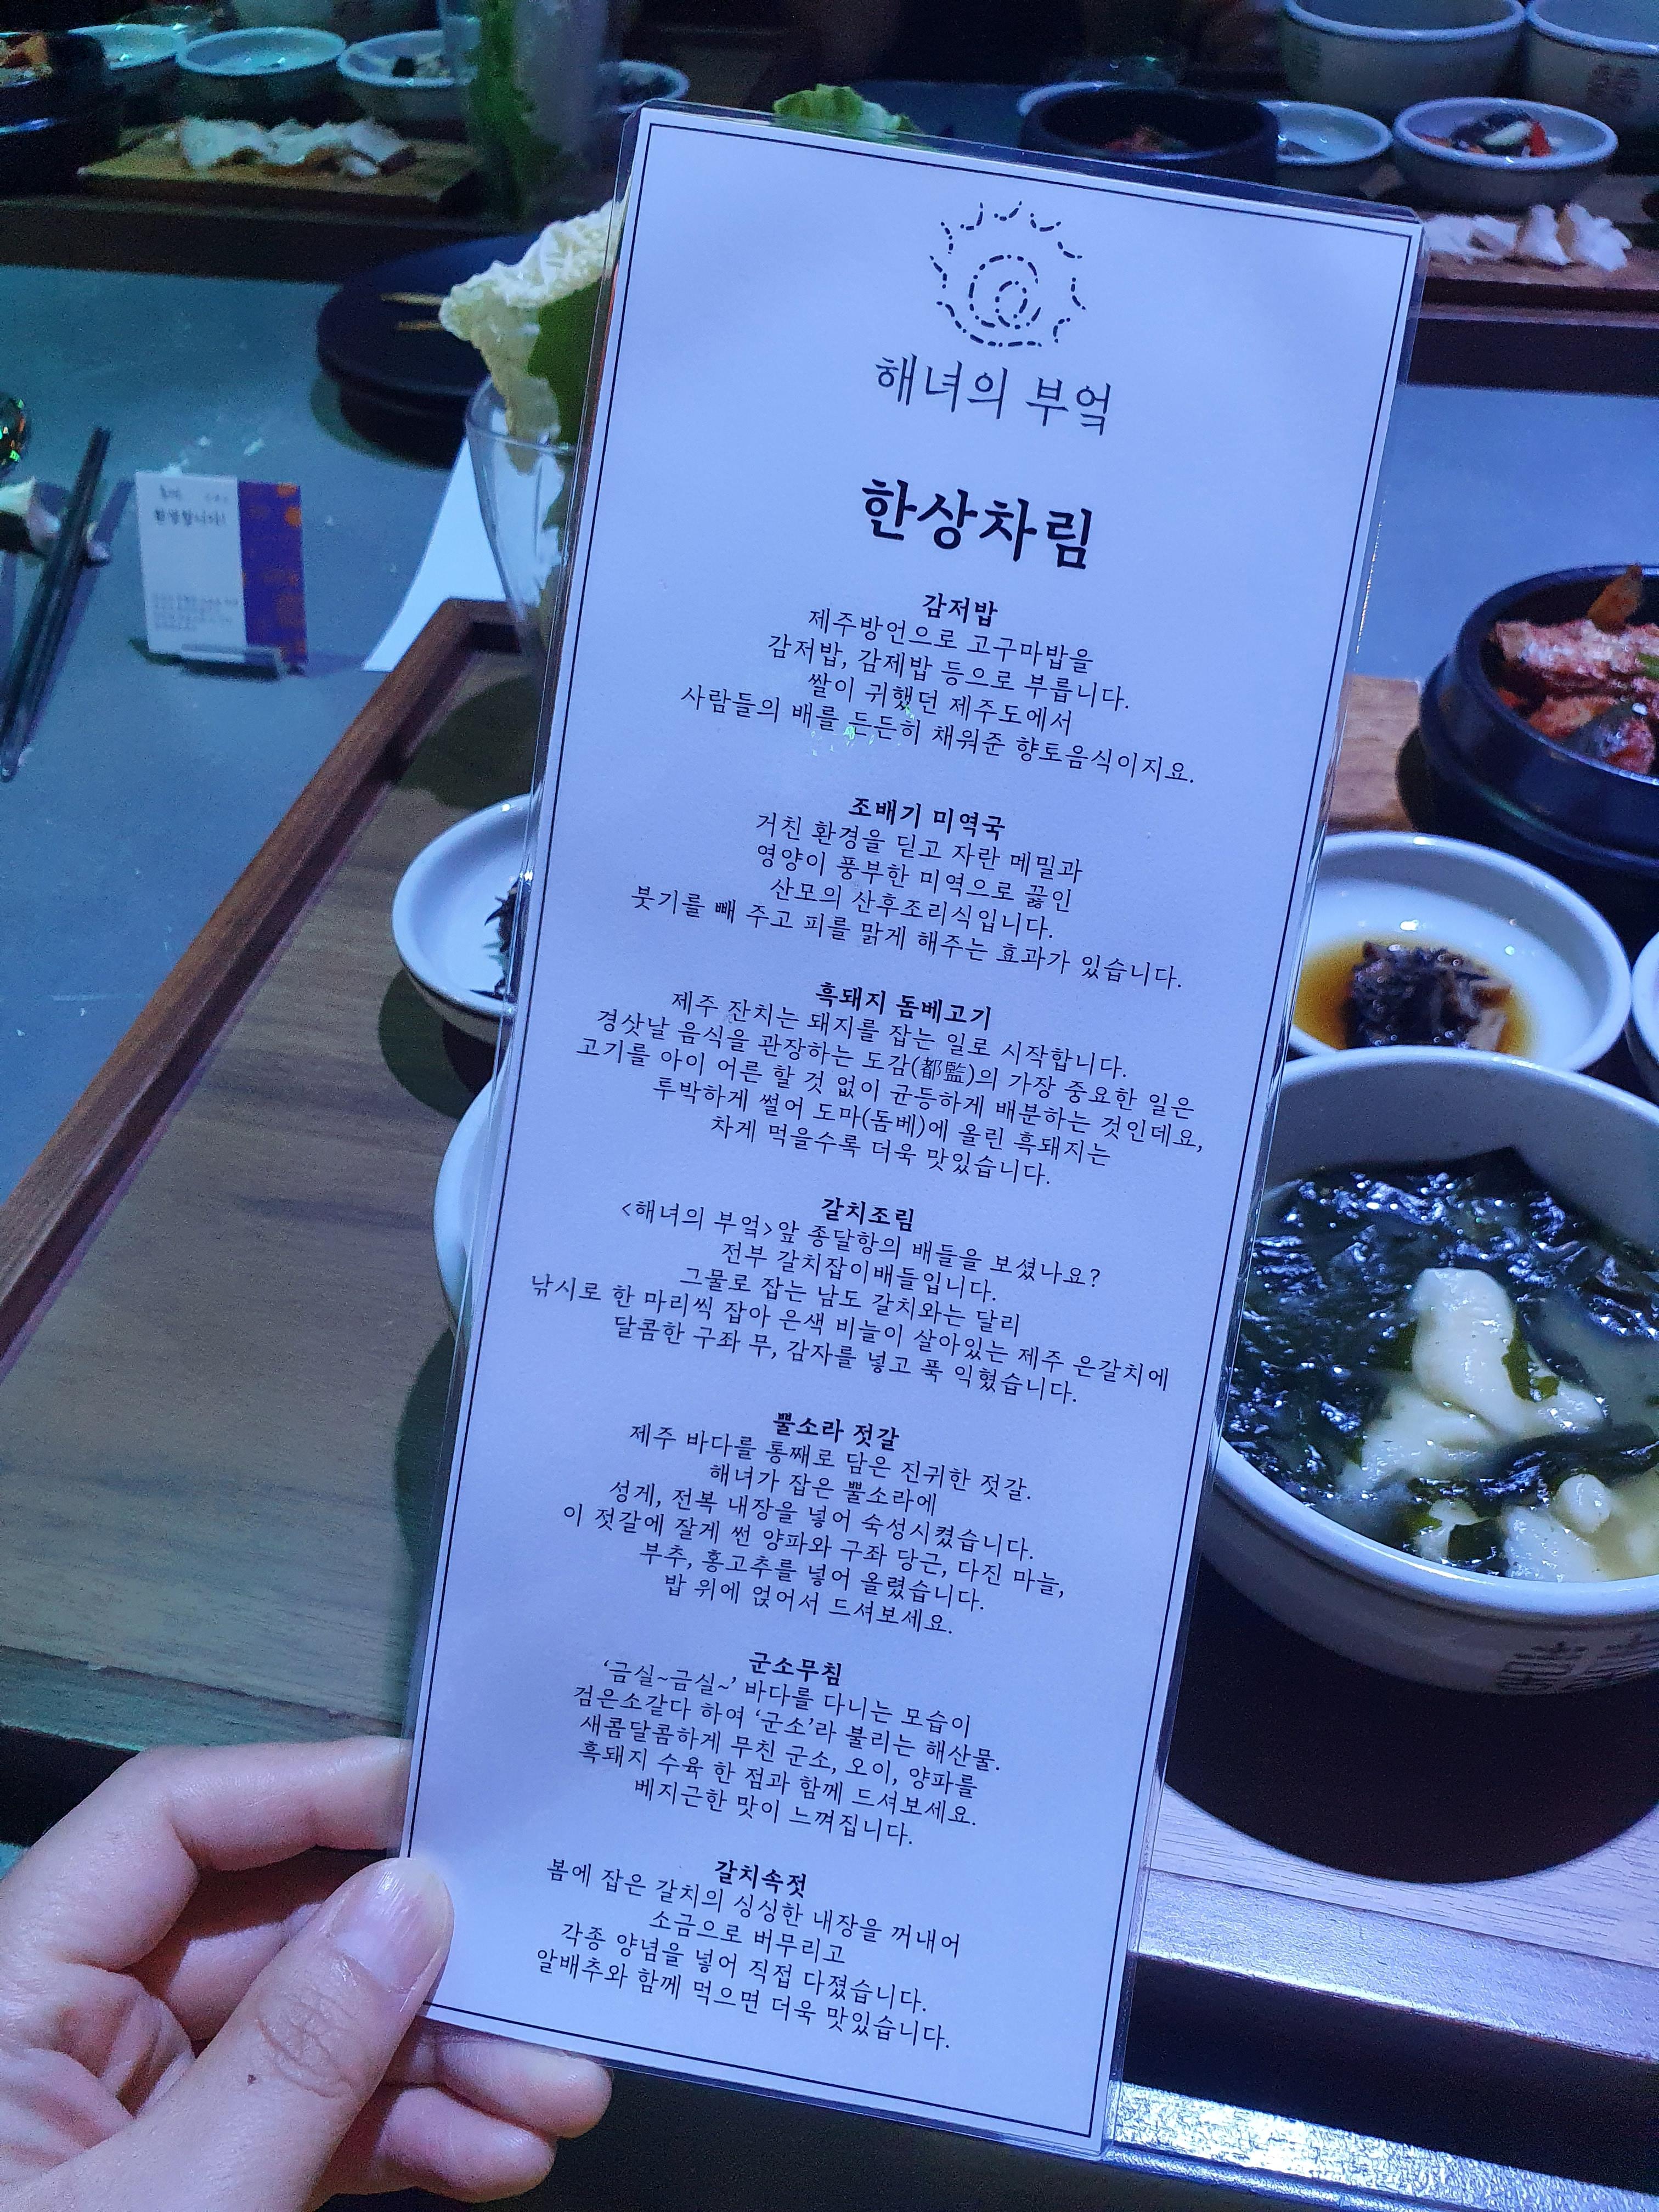 해녀의 부엌
한상차림
감저밥
제주방언으로 고구마밥을
감저밥, 감제밥 등으로 부릅니다.
쌀이 귀했던 제주도에서
사람들의 배를 든든히 채워준 향토음식이지요.
조배기 미역국
거친 환경을 딛고 자란 메밀과
영양이 풍부한 미역으로 끓인
산모의 산후조리식입니다.
붓기를 빼 주고 피를 맑게 해주는 효과가 있습니다.
흑돼지 돔베고기
제주 잔치는 돼지를 잡는 일로 시작합니다.
경삿날 음식을 관장하는 도감(都監)의 가장 중요한 일은
고기를 아이 어른 할 것 없이 균등하게 배분하는 것인데요,
투박하게 썰어 도마(돔베)에 올린 흑돼지는
차게 먹을수록 더욱 맛있습니다.
갈치조림
<해녀의 부엌>앞 종달항의 배들을 보셨나요?
전부 갈치잡이배들입니다.
그물로 잡는 남도 갈치와는 달리
낚시로 한 마리씩 잡아 은색 비늘이 살아있는 제주 은갈치에
달콤한 구좌 무, 감자를 넣고 푹 익혔습니다.
뿔소라 젓갈
제주 바다를 통째로 담은 진귀한 젓갈.
해녀가 잡은 뿔소라에
성게, 전복 내장을 넣어 숙성시켰습니다.
이 젓갈에 잘게 썬 양파와 구좌 당근, 다진 마늘,
부추, 홍고추를 넣어 올렸습니다.
밥 위에 얹어서 드셔보세요.
군소무침
‘금실~금실~’ 바다를 다니는 모습이
검은소같다 하여 ‘군소’라 불리는 해산물.
새콤달콤하게 무친 군소, 오이, 양파를
흑돼지 수육 한 점과 함께 드셔보세요.
베지근한 맛이 느껴집니다.
갈치속젓
봄에 잡은 갈치의 싱싱한 내장을 꺼내어
소금으로 버무리고
각종 양념을 넣어 직접 다졌습니다.
알배추와 함께 먹으면 더욱 맛있습니다.
환영합니다!